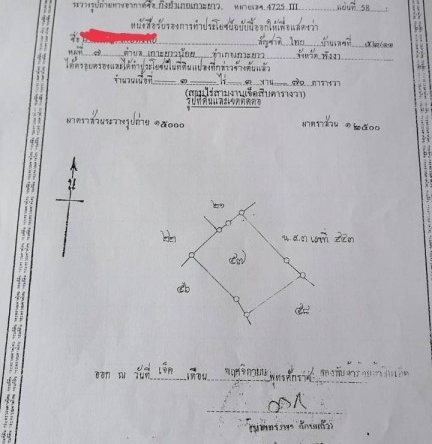 ระวางรูปถ่ายทางอากาศชื่อ กิ่งอำเภอเกาะยาว หมายเลข 4725 III แผ่นที่ 58
หนังสือรับรองการทำประโยชน์ฉบับนี้ออกให้เพื่อแสดงว่า
ชื่อ สัญชาติ ไทย บ้านเลขที่
หมู่ที่ ๗ ตำบล เกาะยาวน้อย อำเภอเกาะยาว จังหวัด พังงา
ได้ครอบครองและได้ทำประโยชน์ในที่ดินแปลงซึ่งกล่าวข้างต้นแล้ว
จำนวนเนื้อที่ ๓ ไร่ ๓ งาน ๗๐ ตารางวา
(สามไร่สามงานเจ็ดสิบตารางวา)
รูปที่ดินและเขตติดต่อ
มาตราส่วนระวางรูปถ่าย ๑:๕๐๐๐ มาตราส่วน ๑:๒๕๐๐
๒๑
๒๒
น.ส.๓ เลขที่ ๕๔๓
๔๗
๔๖
๔๘
ออก ณ วันที่ เจ็ด เดือน พฤศจิกายน พุทธศักราช